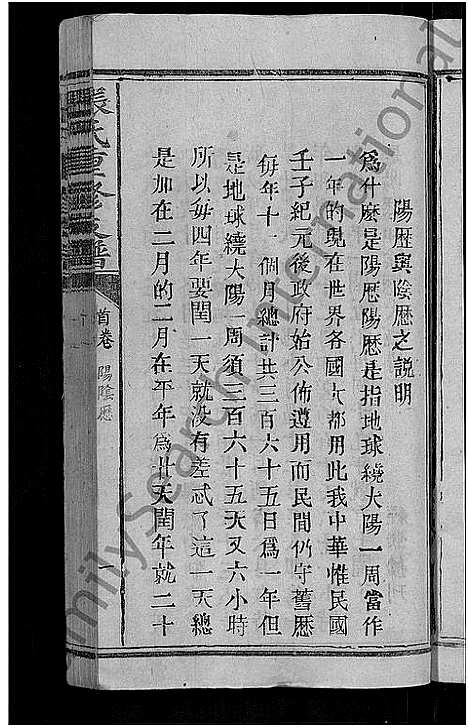 陽歷與陰歷之説明
爲什麽是陽歷陽歷是指地球繞大陽一周當作
一年的現在世界各國大都用此我中華惟民國
壬子紀元後政府始公佈遵用而民間仍守舊歷
每年十一個月總計共三百六十五日爲一年但
是地球繞大陽一周須三百六十五天又六小時
所以每四年要閏一天就没有差忒了這一天總
是加在二月的二月在平年爲廿天閏年就二十
張氏重修支譜
首卷
陽陰歷
一
FamilySearch International